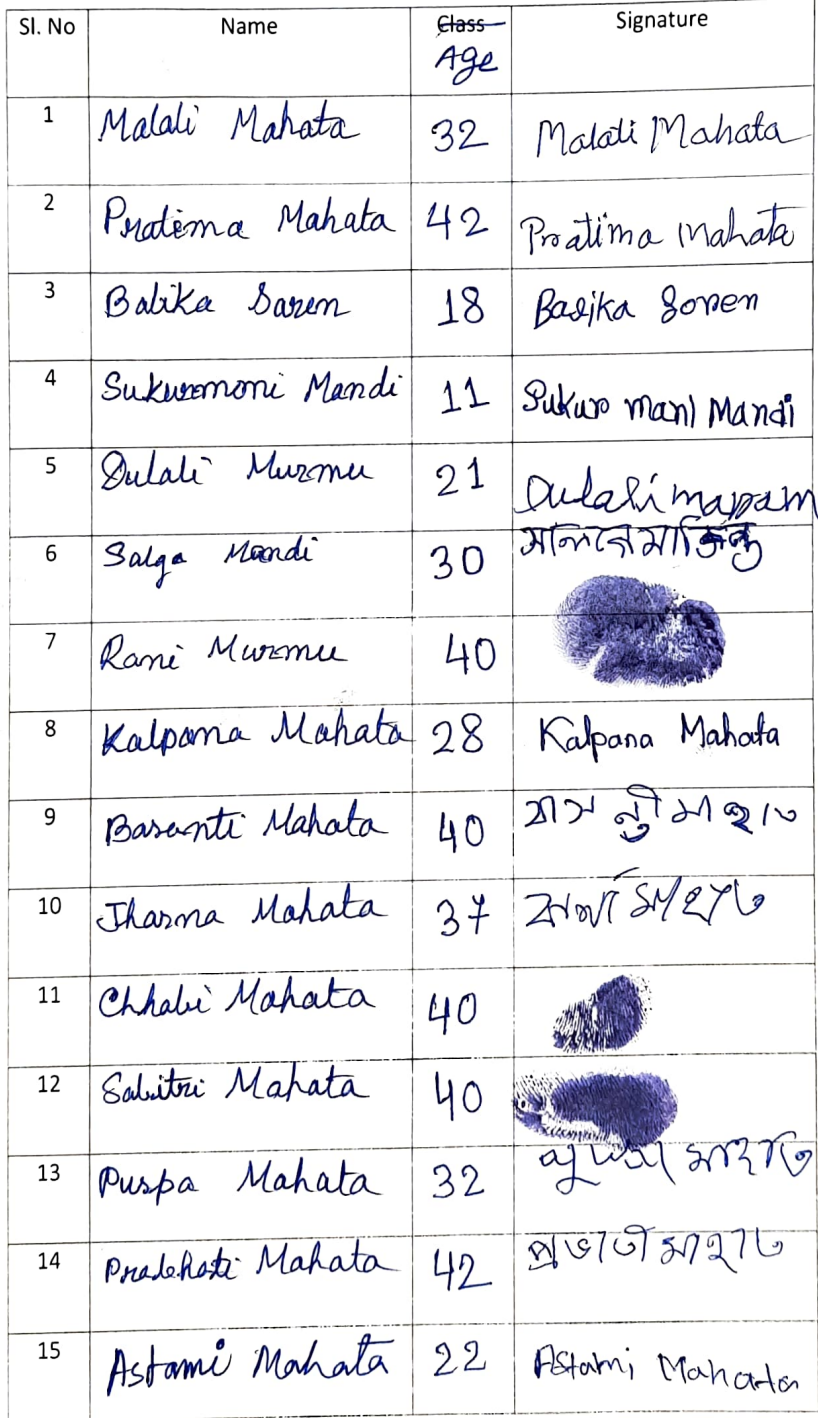 Sl. No Name Class Signature
Age
1 Malali Mahata 32 Malati Mahata
2 Pratima Mahata 42 Pratima Mahata
3 Balika Saren 18 Basika Soren
4 Sukurmoni Mandi 11 Sukur mani Mandi
5 Dulali Murmu 21 Dulali
6 Salga Mandi 30
7 Rani Murmu 40
8 Kalpana Mahata 28 Kalpana Mahata
9 Basanti Mahata 40 বাসন্তী মাহাত
10 Jharna Mahata 37 মাহাত
11 Chhabi Mahata 40
12 Sabitri Mahata 40
13 Puspa Mahata 32 মাহাত
14 Prabhati Mahata 42 প্রভাতী মাহাত
15 Astami Mahata 22 Astami Mahata